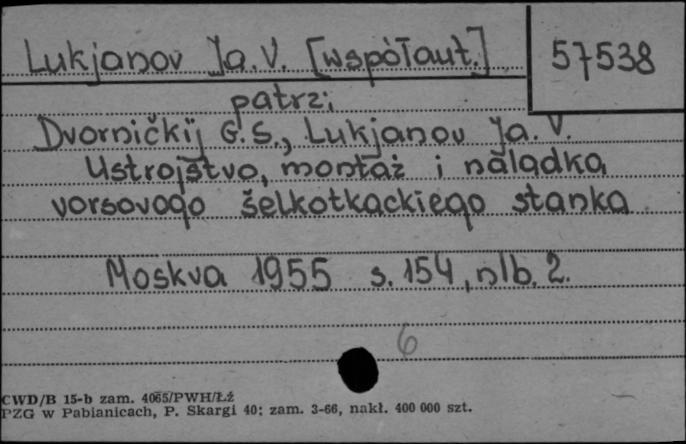 Lukjanov Ja. V. [współaut.]
57538
patrz:
Dvorničkij G. S., Lukjanov Ja. V.
Ustrojstvo, montaż i naladka
vorsovogo šelkotkackiego stanka
Moskva 1955 s. 154, nlb. 2.
6
CWD/B 15-b zam. 4065/PWH/Łż
PZG w Pabianicach, P. Skargi 40; zam. 3-66, nakł. 400 000 szt.